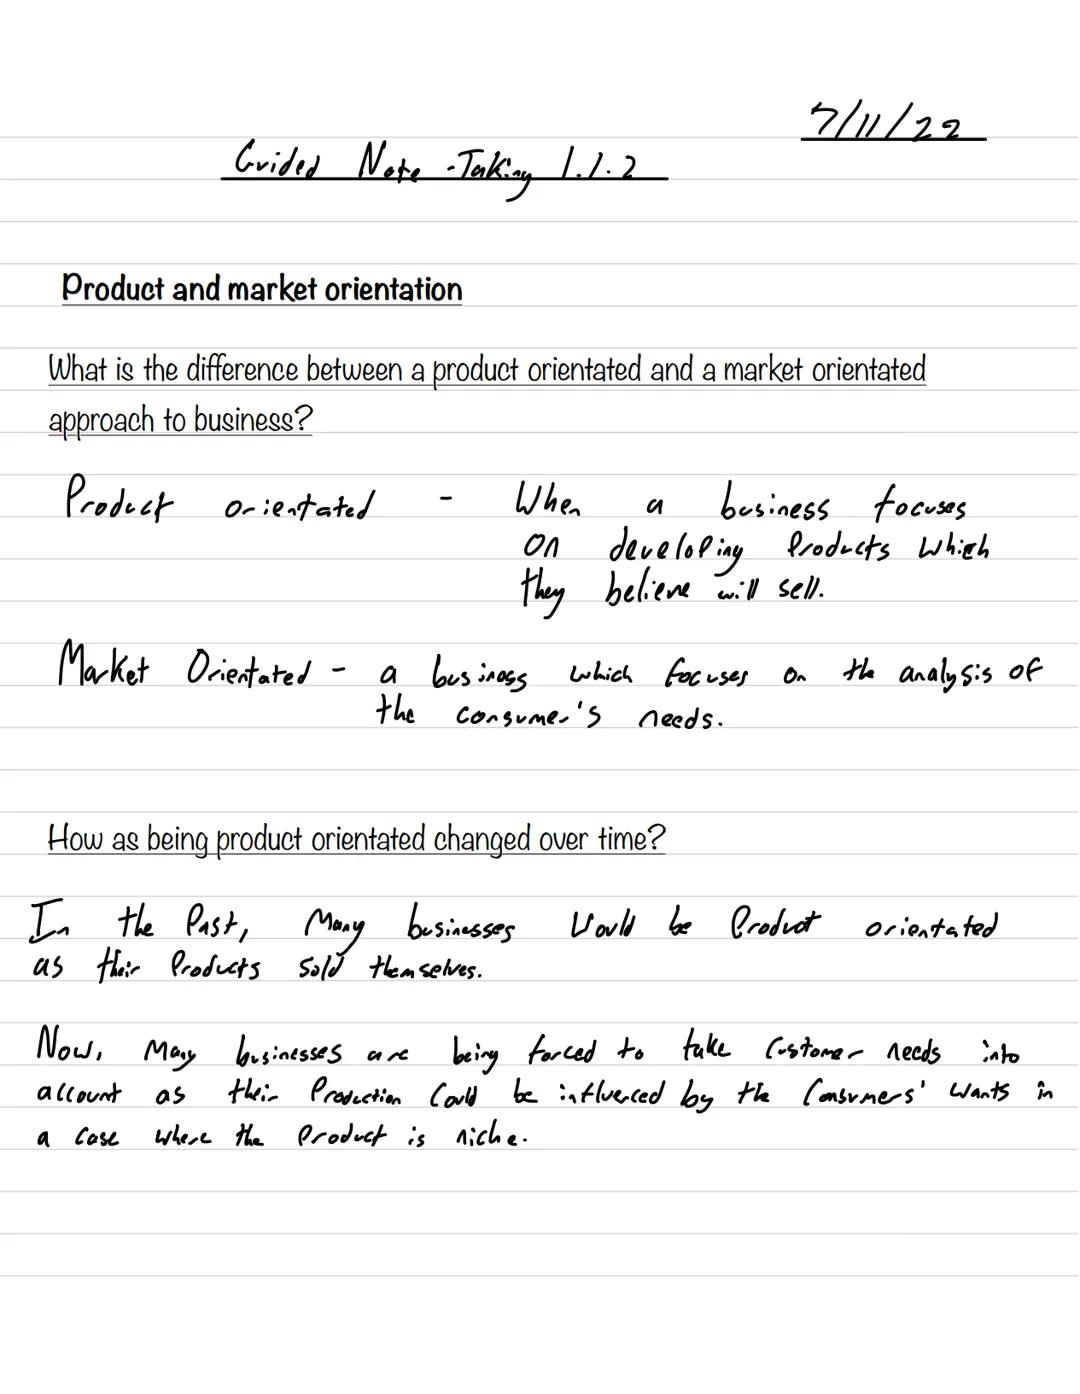 7/11/22
Guided Note-Taking 1.1.2
Product and market orientation
What is the difference between a product orientated and a market orientated
approach to business?
Product orientated - When a business focuses
on developing Products which
they believe will sell.
Market Orientated - a business which focuses on the analysis of
the consumer's needs.
How as being product orientated changed over time?
In the Past, Many businesses Would be Product orientated
as their Products sold themselves.
Now, Many businesses are being forced to take Customer needs into
account as their Production Could be influenced by the Consumers' wants in
a case where the Product is niche.